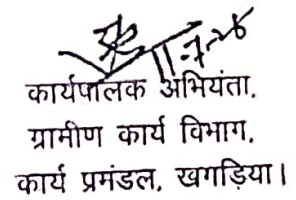 कार्यपालक अभियंता.
ग्रामीण कार्य विभाग.
कार्य प्रमंडल. खगड़िया।